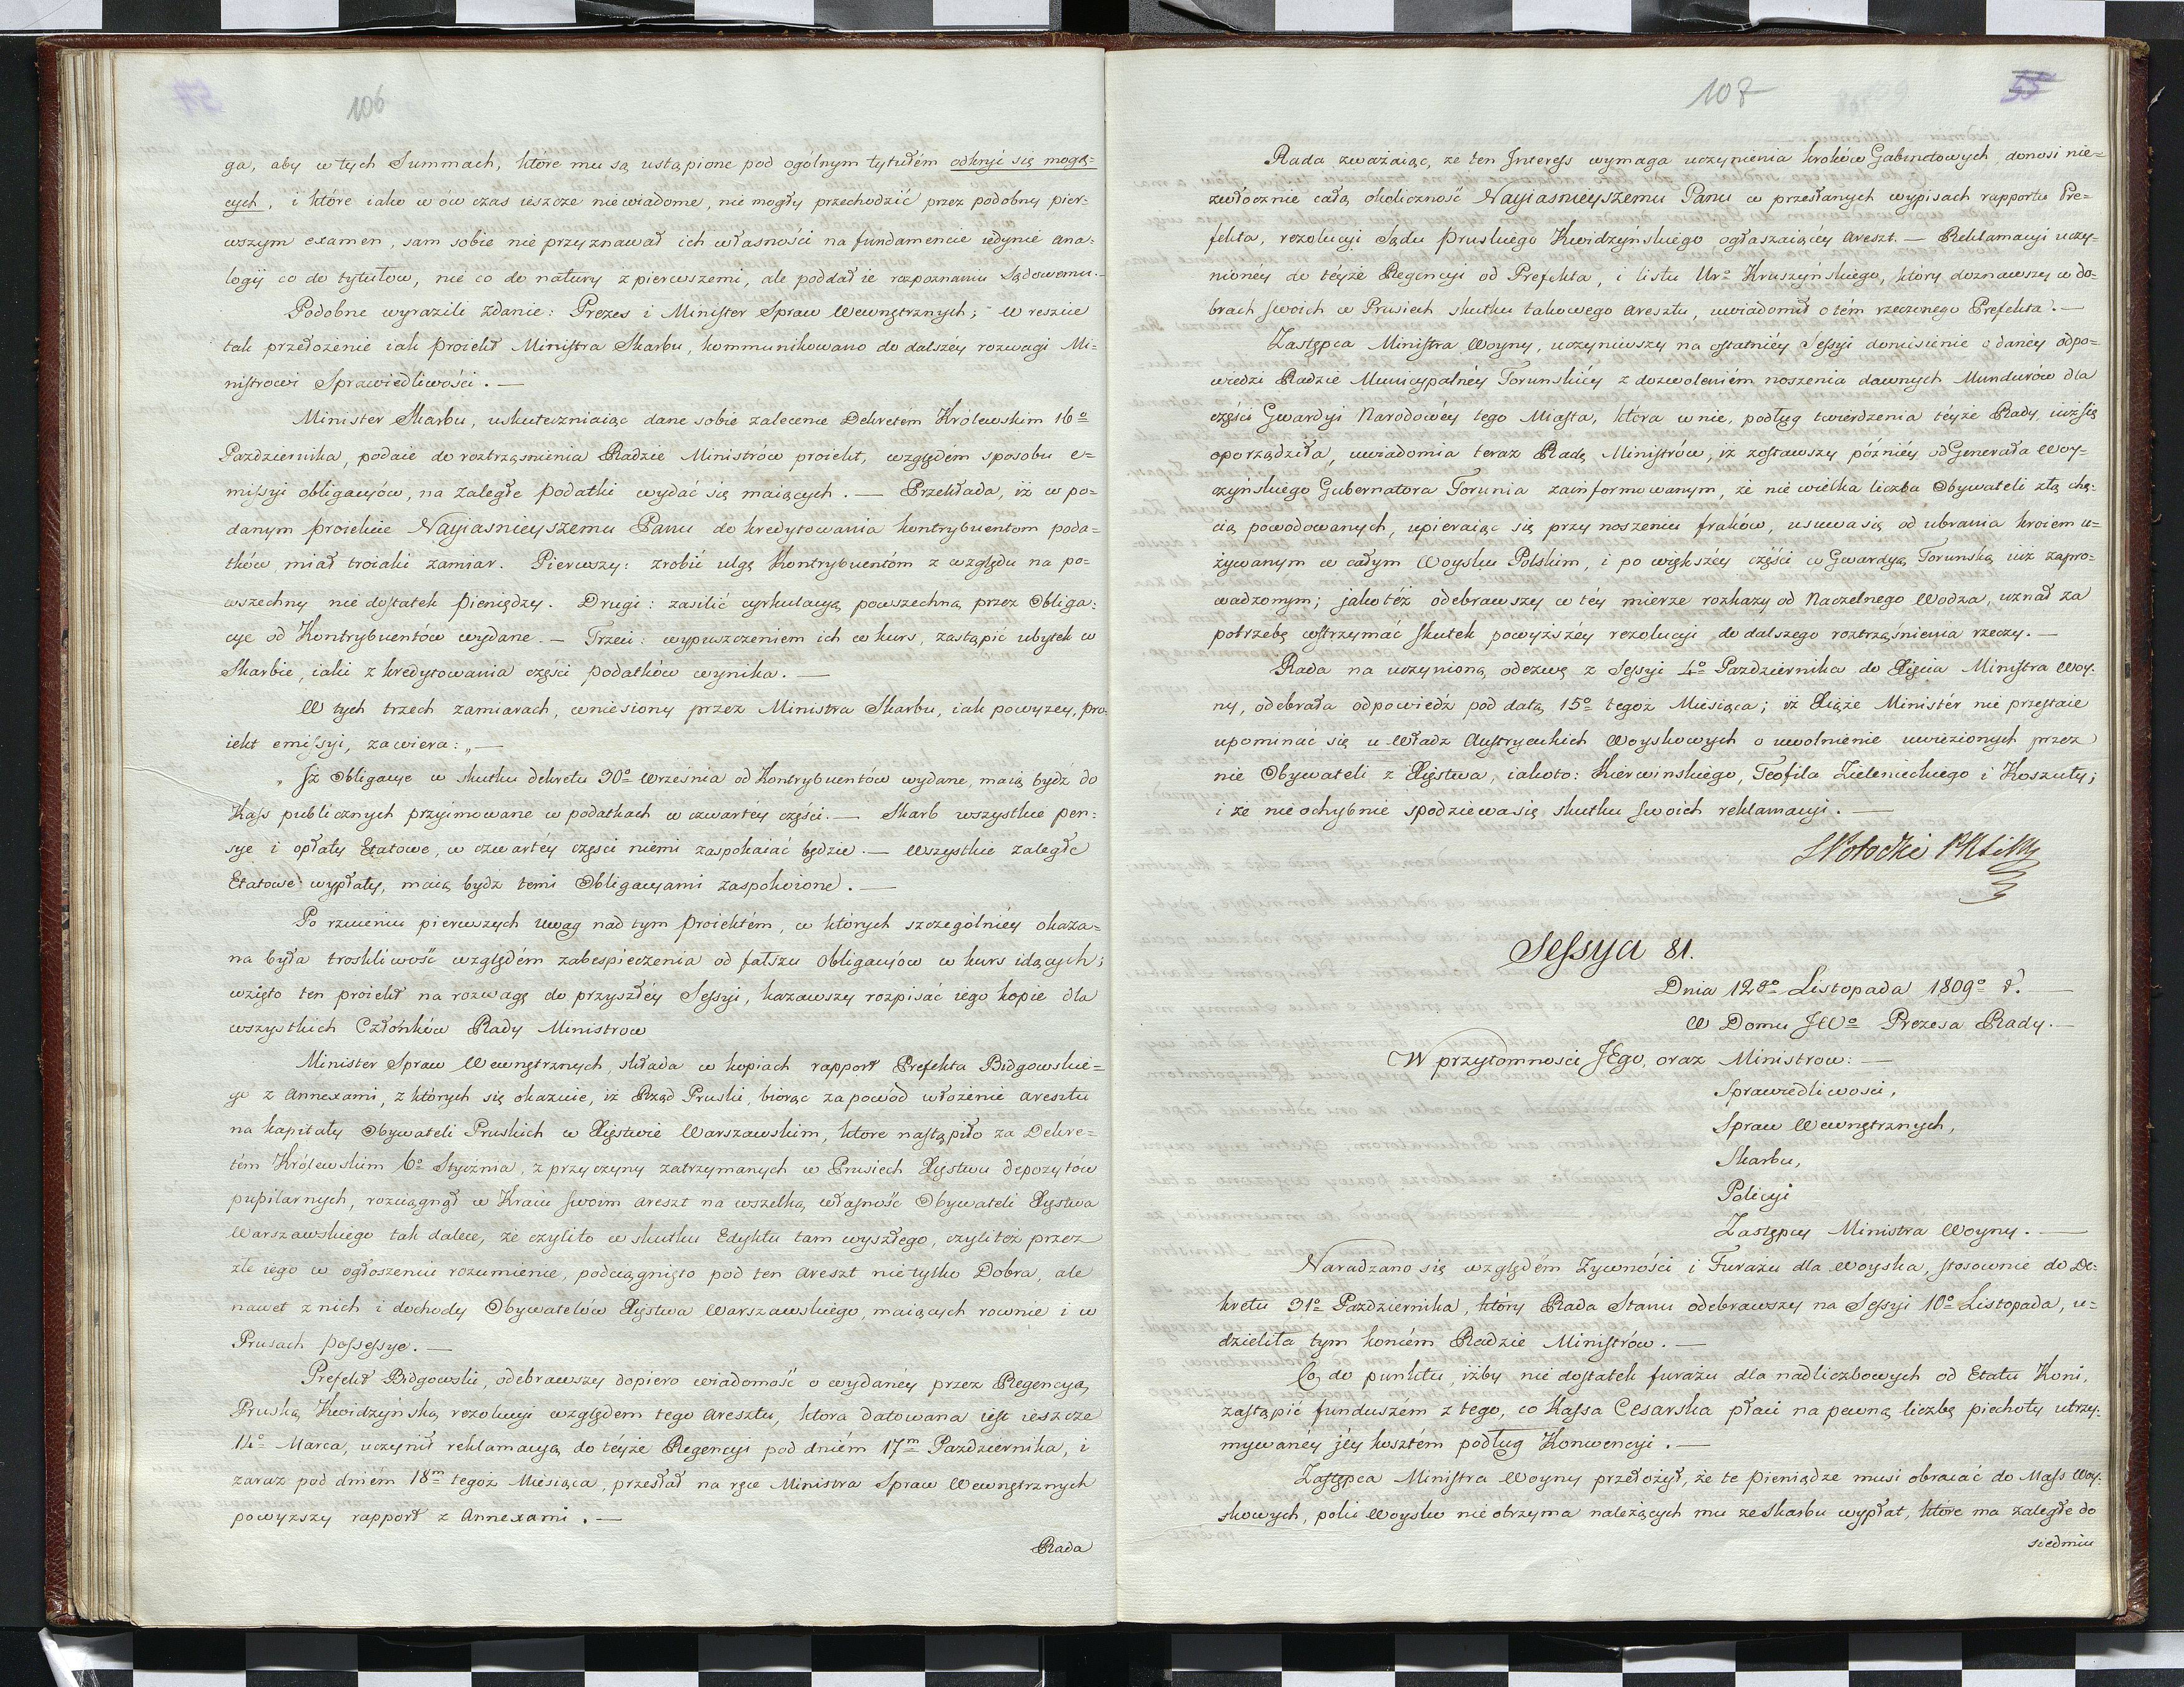 106
ga, aby w tych Summach, ktore mu są ustąpione pod ogólnym tytułem odkryć się mogą=
cych, i które iako w ów czas ieszcze niewiadome, nie mogły przechodzić przez podobny pier=
wszym examen, sam sobie nie przyznawał ich własności na fundamencie iedynie ana=
logij co do tytułow, nie co do natury z pierwszemi, ale poddał ie rozpoznaniu Sądowemu.—
Podobne wyrazili Zdanie: Prezes i Minister Spraw Wewnętrznych; W reszcie
tak przełożenie iak proiekt Ministra Skarbu, kommunikowano do dalszéy rozwagi Mi=
nistrowi Sprawiedliwości. —
Minister Skarbu, uskuteczniaiąc dane sobie zalecenie Dekretém Królewskim 16o
Pazdziernika, podaie do roztrząsnienia Radzie Ministrów proiekt, względém sposobu e=
missyi obligacyów, na zaległe podatki wydać się maiących. — Przekłada, iż w po=
danym proiekcie Nayiasnieyszemu Panu do kredytowania kontrybuentom poda=
tków miał troiaki zamiar. Pierwszy: zrobić ulgę Kontrybuentóm z względu na po=
wszechny niedostatek pieniędzy. Drugi: zasilić cyrkulacyą powszechną przez Obliga=
cye od Kontrybuentów wydane. — Trzeci: wypuszczeniem ich w kurs, zastąpić ubytek w
Skarbie, iaki z kredytowania części podatków wynika. —
W tych trzech zamiarach, wniesiony przez Ministra Skarbu, iak powyzey, pro=
iekt emissyi, zawiera: „—
„ Iż Obligacye w skutku dekretu 30o Września od Kontrybuentów wydane, maią bydź do
Kass publicznych przyimowane w podatkach w czwartéy części. — Skarb wszystkie pen=
sye i opłaty Etatowe, w czwartéy częsci niemi zaspokaiać będzie. — Wszystkie zaległe
Etatowe wypłaty, maią bydz temi Obligacyami zaspokoione. —
Po rzuceniu pierwszych uwag nad tym proiektém, w których szczególniéy okaza=
na była troskliwość względém zabespieczenia od fałszu obligacyów w kurs idących;
wzięto ten proiekt na rozwagę do przyszłéy Sessyi, kazawszy rozpisać iego kopie dla
wszystkich Członków Rady Ministrow
Minister Spraw Wewnętrznych, składa w kopiach rapport Prefekta Bidgowskie=
go z Annexami, z których się okazuie, iż Rząd Pruski, biorąc za powód włożenie aresztu
na kapitały Obywateli Pruskich w Xięstwie Warszawskim, ktore nastąpiło za Dekre=
tém Królewskim 6o Stycznia, z przyczyny zatrzymanych w Prusiech Xięstwu depozytów
pupilarnych, rozciągnął w Kraiu swoim areszt na wszelką własność Obywateli Xięstwa
Warszawskiego tak dalece, że czylito w skutku Edyktu tam wyszłego, czyliteż przez
złe iego w ogłoszeniu rozumienie, podciągnięto pod ten areszt nietylko Dobra, ale
nawet z nich i dochody Obywatelów Xięstwa Warszawskiego, maiących rownie i w
Prusach possessye. —
Prefekt Bidgowski, odebrawszy dopiero wiadomość o wydaney przez Regencyą
Pruską Kwidzyńską rezolucyi względem tego aresztu, ktora datowana iest ieszcze
14o Marca, uczynił reklamacyą do téyże Regencyi pod dniém 17m Pazdziernika, i
zaraz pod dniém 18m tegoż Miesiąca, przesłał na ręce Ministra Spraw Wewnętrznych
powyzszy rapport z Annexami. —
Rada
108
55
Rada zważaiąc, ze ten Interess wymaga uczynienia kroków Gabinetowych, donosi nie=
zwłocznie całą okoliczność Nayiasnieyszemu Panu w przesłanych wypisach rapportu Pre=
fekta, rezolucyi Sądu Pruskiego Kwidzyńskiego ogłaszaiącéy areszt. — Reklamacyi uczy=
nionéy do téyże Regencyi od Prefekta, i listu Uro Kruszyńskiego, który doznawszy w do=
brach swoich w Prusiech skutku takowego aresztu, uwiadomił o tém rzeczonego Prefekta. —
Zastępca Ministra Woyny, uczyniwszy na ostatniéy Sessyi doniesienie o danéy odpo=
wiedzi Radzie Municypalnéy Torunskiéy z dozwoleniém noszenia dawnych Mundurów dla
części Gwardyi Narodowéy tego Miasta, która w nie, podług twierdzenia téyże Rady, iuż się
oporządziła, uwiadomia teraz Radę Ministrów, iż zostawszy późniéy od Generała Woy=
czyńskiego Gubernatora Torunia zainformowanym, że nie wielka liczba Obywateli złą chę=
cią powodowanych, upieraiąc się przy noszeniu fraków, usuwa się od ubrania kroiem u=
żywanym w całym Woysku Polskim, i po większéy części w Gwardyą Torunską iuż zapro=
wadzonym; jakotéż odebrawszy w téy mierze rozkazy od Naczelnego Wodza, uznał za
potrzebę wstrzymać skutek powyższéy rezolucyi do dalszego roztrząśnienia rzeczy. —
Rada na uczynioną odezwę z Sessyi 4o Pazdziernika do Xięcia Ministra Woy=
ny, odebrała odpowiedź pod datą 15o tegoż Miesiąca; iż Xiąże Ministér nie przestaie
upominać się u Władz Austryackich Woyskowych o uwolnienie uwiezionych przez
nie Obywateli z Xięstwa, iakoto: Kierwinskiego, Teofila Zielenieckiego i Koszuty;
i że nieochybnie spodziewa się skutku swoich reklamacyi. —
SPotocki
Sessya 81.
Dnia 12go Listopada 1809o r. —
W Domu JWo Prezesa Rady. —
W przytomnosci JEgo, oraz Ministrow: —
Sprawiedliwosci,
Spraw Wewnętrznych,
Skarbu,
Policyi
Zastępcy Ministra Woyny. —
Naradzano się względém Zywności i Furażu dla Woyska, stosownie do De=
kretu 31o Pazdziernika, który Rada Stanu odebrawszy na Sessyi 10o Listopada, u=
dzieliła tym koncém Radzie Ministrów. —
Co do punktu, iżby nie dostatek furażu dla nadliczbowych od Etatu Koni,
zastąpić funduszém z tego, co Kassa Cesarska płaci na pewną liczbę piechoty utrzy=
mywanéy jéy kosztém podług Konwencyi. —
Zastępca Ministra Woyny przełożył, że te pieniądze musi obracać do Mass Woy=
skowych, poki Woysko nie otrzyma należących mu ze Skarbu wypłat, które ma zaległe do
siedmiu